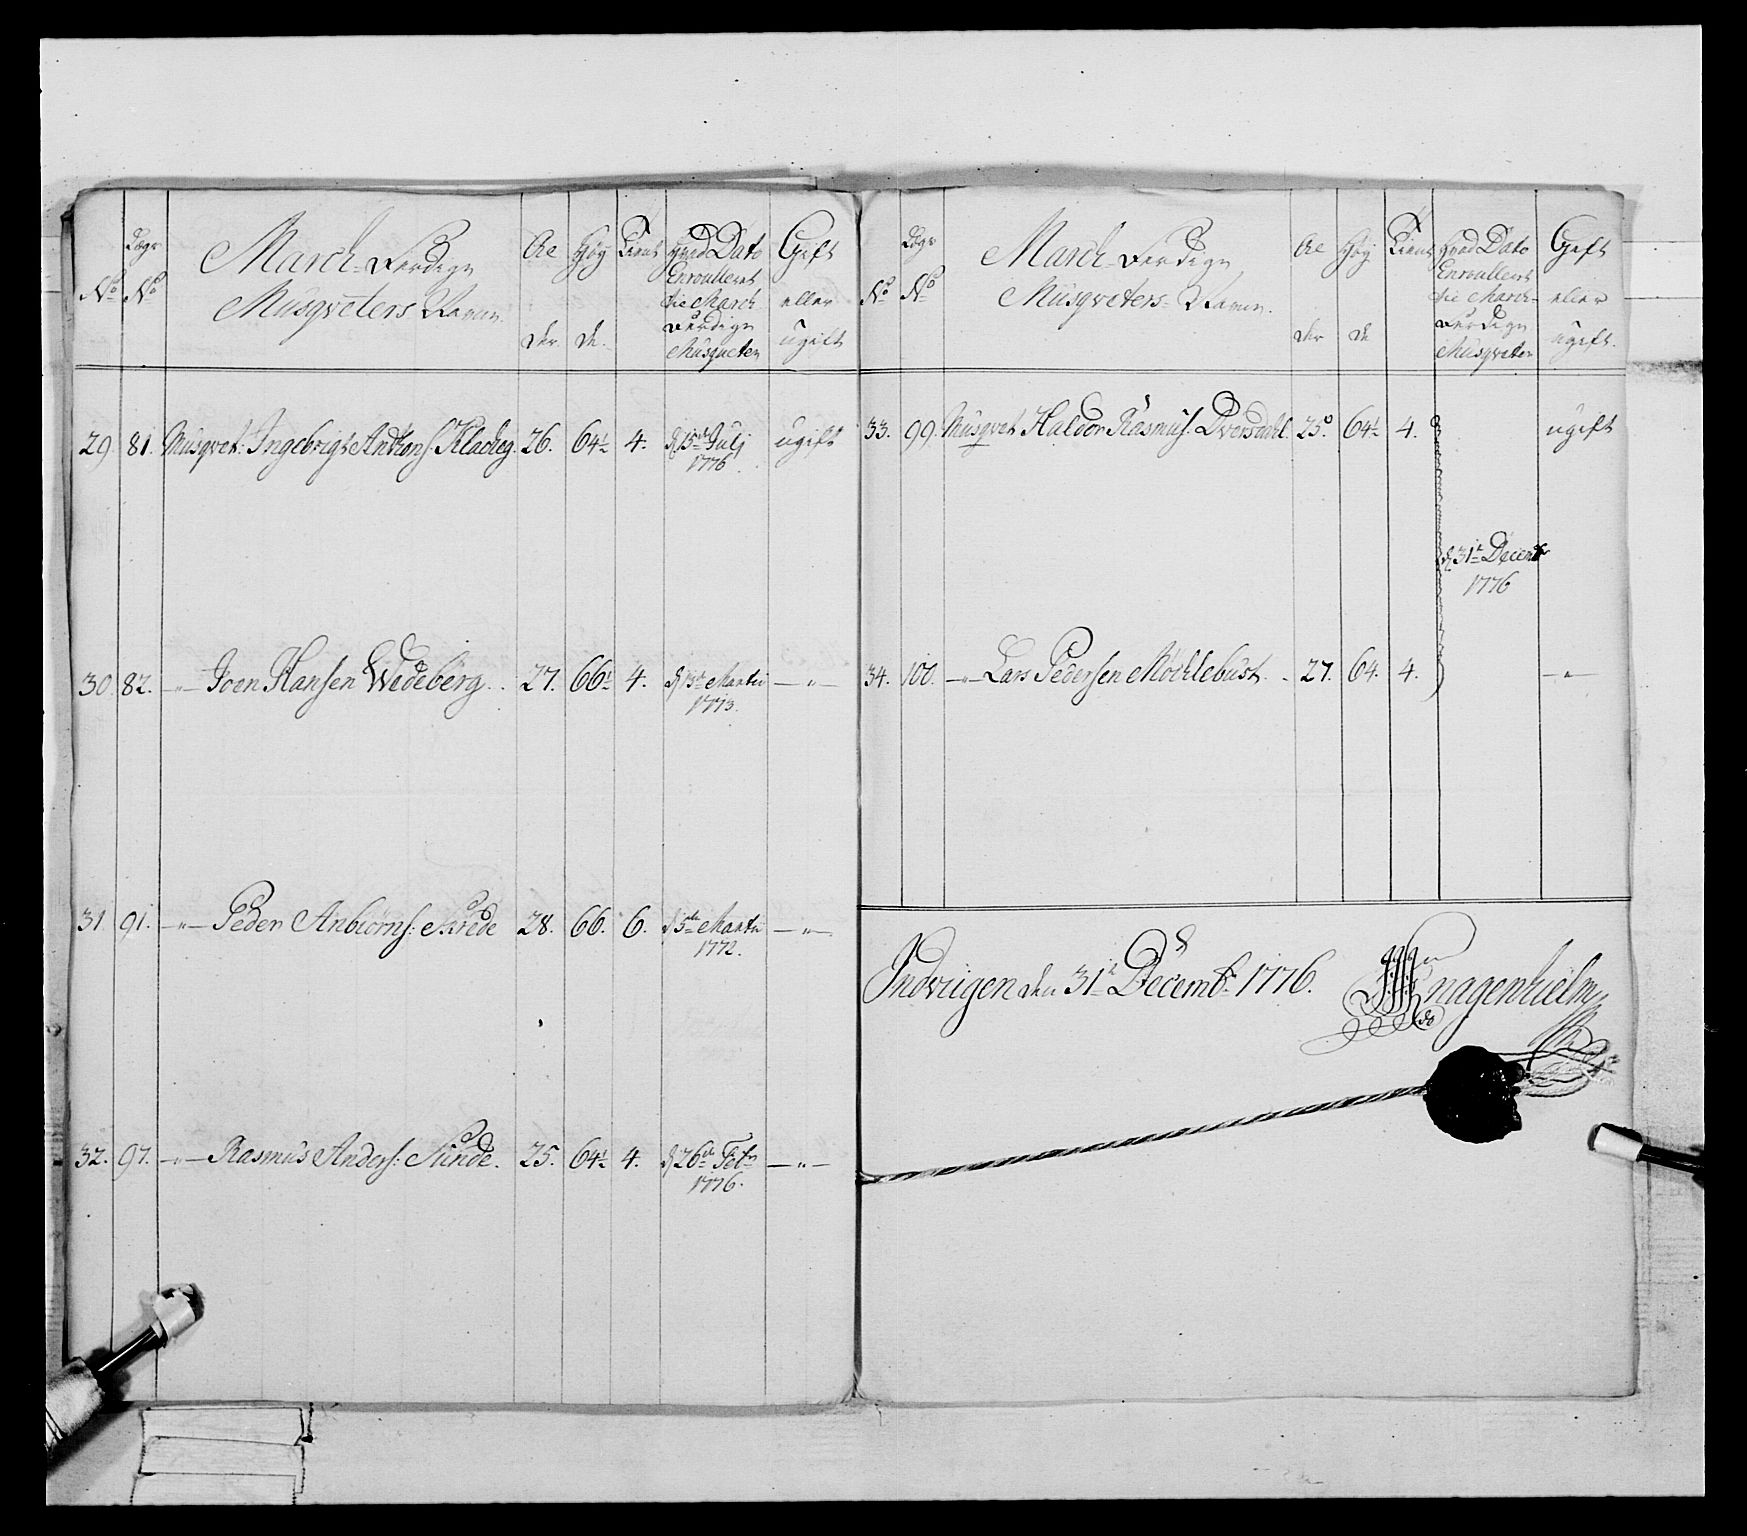 No
Lægs No
March-Færdige Musqveters Navn.
Al der.
Høy de.
Tient
Hvad Dato Enroulleret die March færdige Musqueter
Gift eller ugift
29. 81. Musqvet: Ingebrigt Anthons: Klacheg. 26. 64½ 4. d 15de Julj 1776. ugift
30. 82. —"— Joen Hansen Wedeberg. 27. 66½ 4. d 15de Martii 1773. —"—
31. 91. —"— Peder Anbiörns: 28. 66. 6. d 5de Martii 1772. —"—
32. 97. —"— Rasmus Anders: Sunde. 25. 64½ 4. d 26de Febr 1776. —"—
No
Lægs No
March-Færdige Musqveters Navn.
Al der
Høy de
Tient
Hvad Dato Enroullerst die March-færdige Musqveter
Gift eller ugift.
33. 99. Musqvet Haldor Rasmus: Dvergdahl. 25. 64½ 4. ugift
d 31te Decembr 1776
34. 100. —"— Lars Pedersen Möchlebust. 27. 64. 4. —"—
Indvigen den 31te Decembr 1776. Knagenhielm